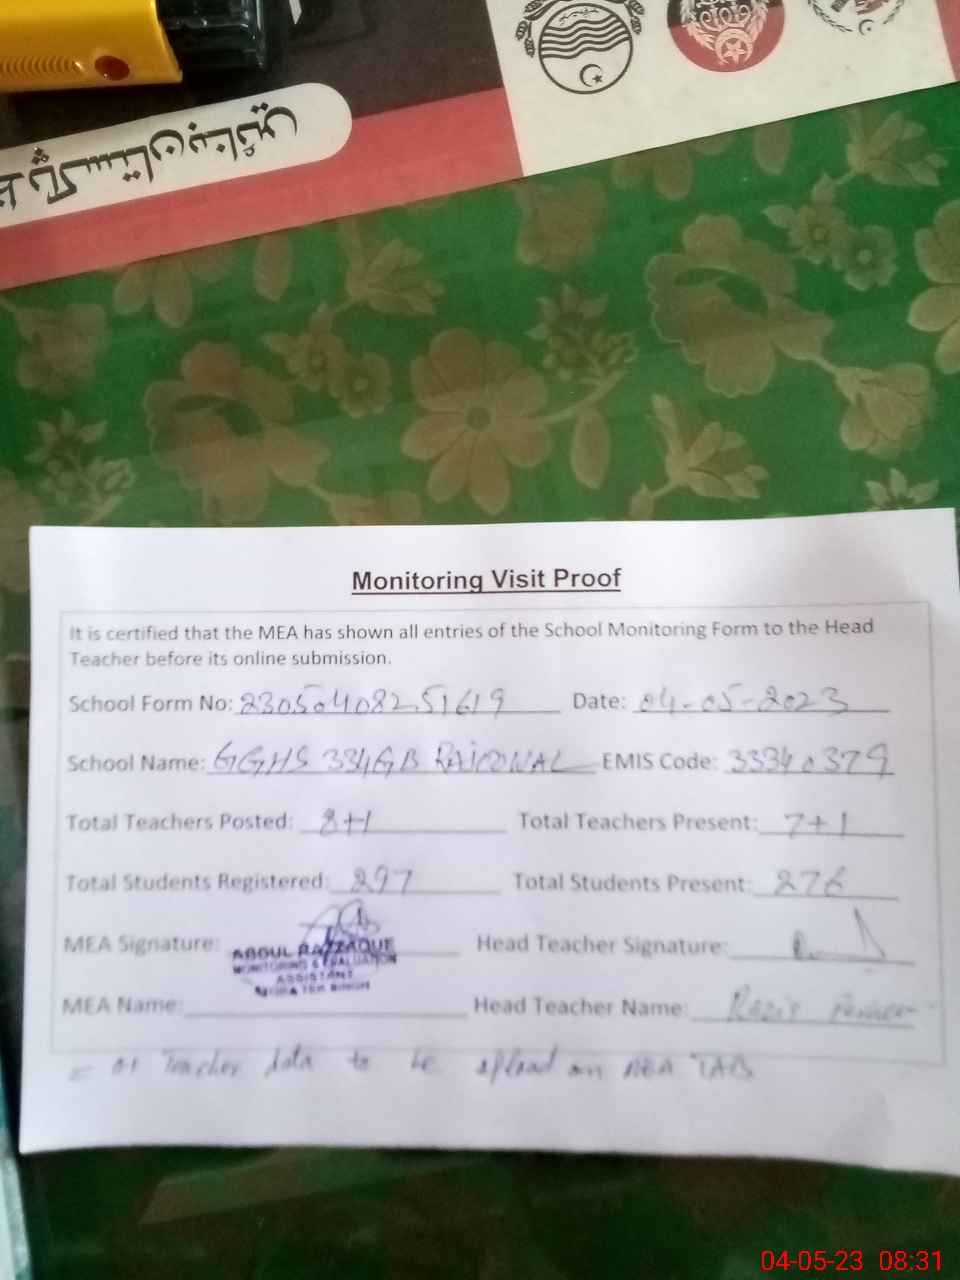 پاکستان بنائیں
Monitoring Visit Proof
It is certified that the MEA has shown all entries of the School Monitoring Form to the Head
Teacher before its online submission.
School Form No: 23050408251619 Date: 04-05-2023
School Name: GGHS 334GB RAICOWAL EMIS Code: 33340379
Total Teachers Posted: 8+1 Total Teachers Present: 7+1
Total Students Registered: 297 Total Students Present: 276
MEA Signature: Head Teacher Signature:
ABDUL RAZZAQUE
MONITORING & EVALUATION
ASSISTANT
MEA Name: Head Teacher Name: Razia
= 01 Teacher data to be upload on MEA TAB
04-05-23 08:31